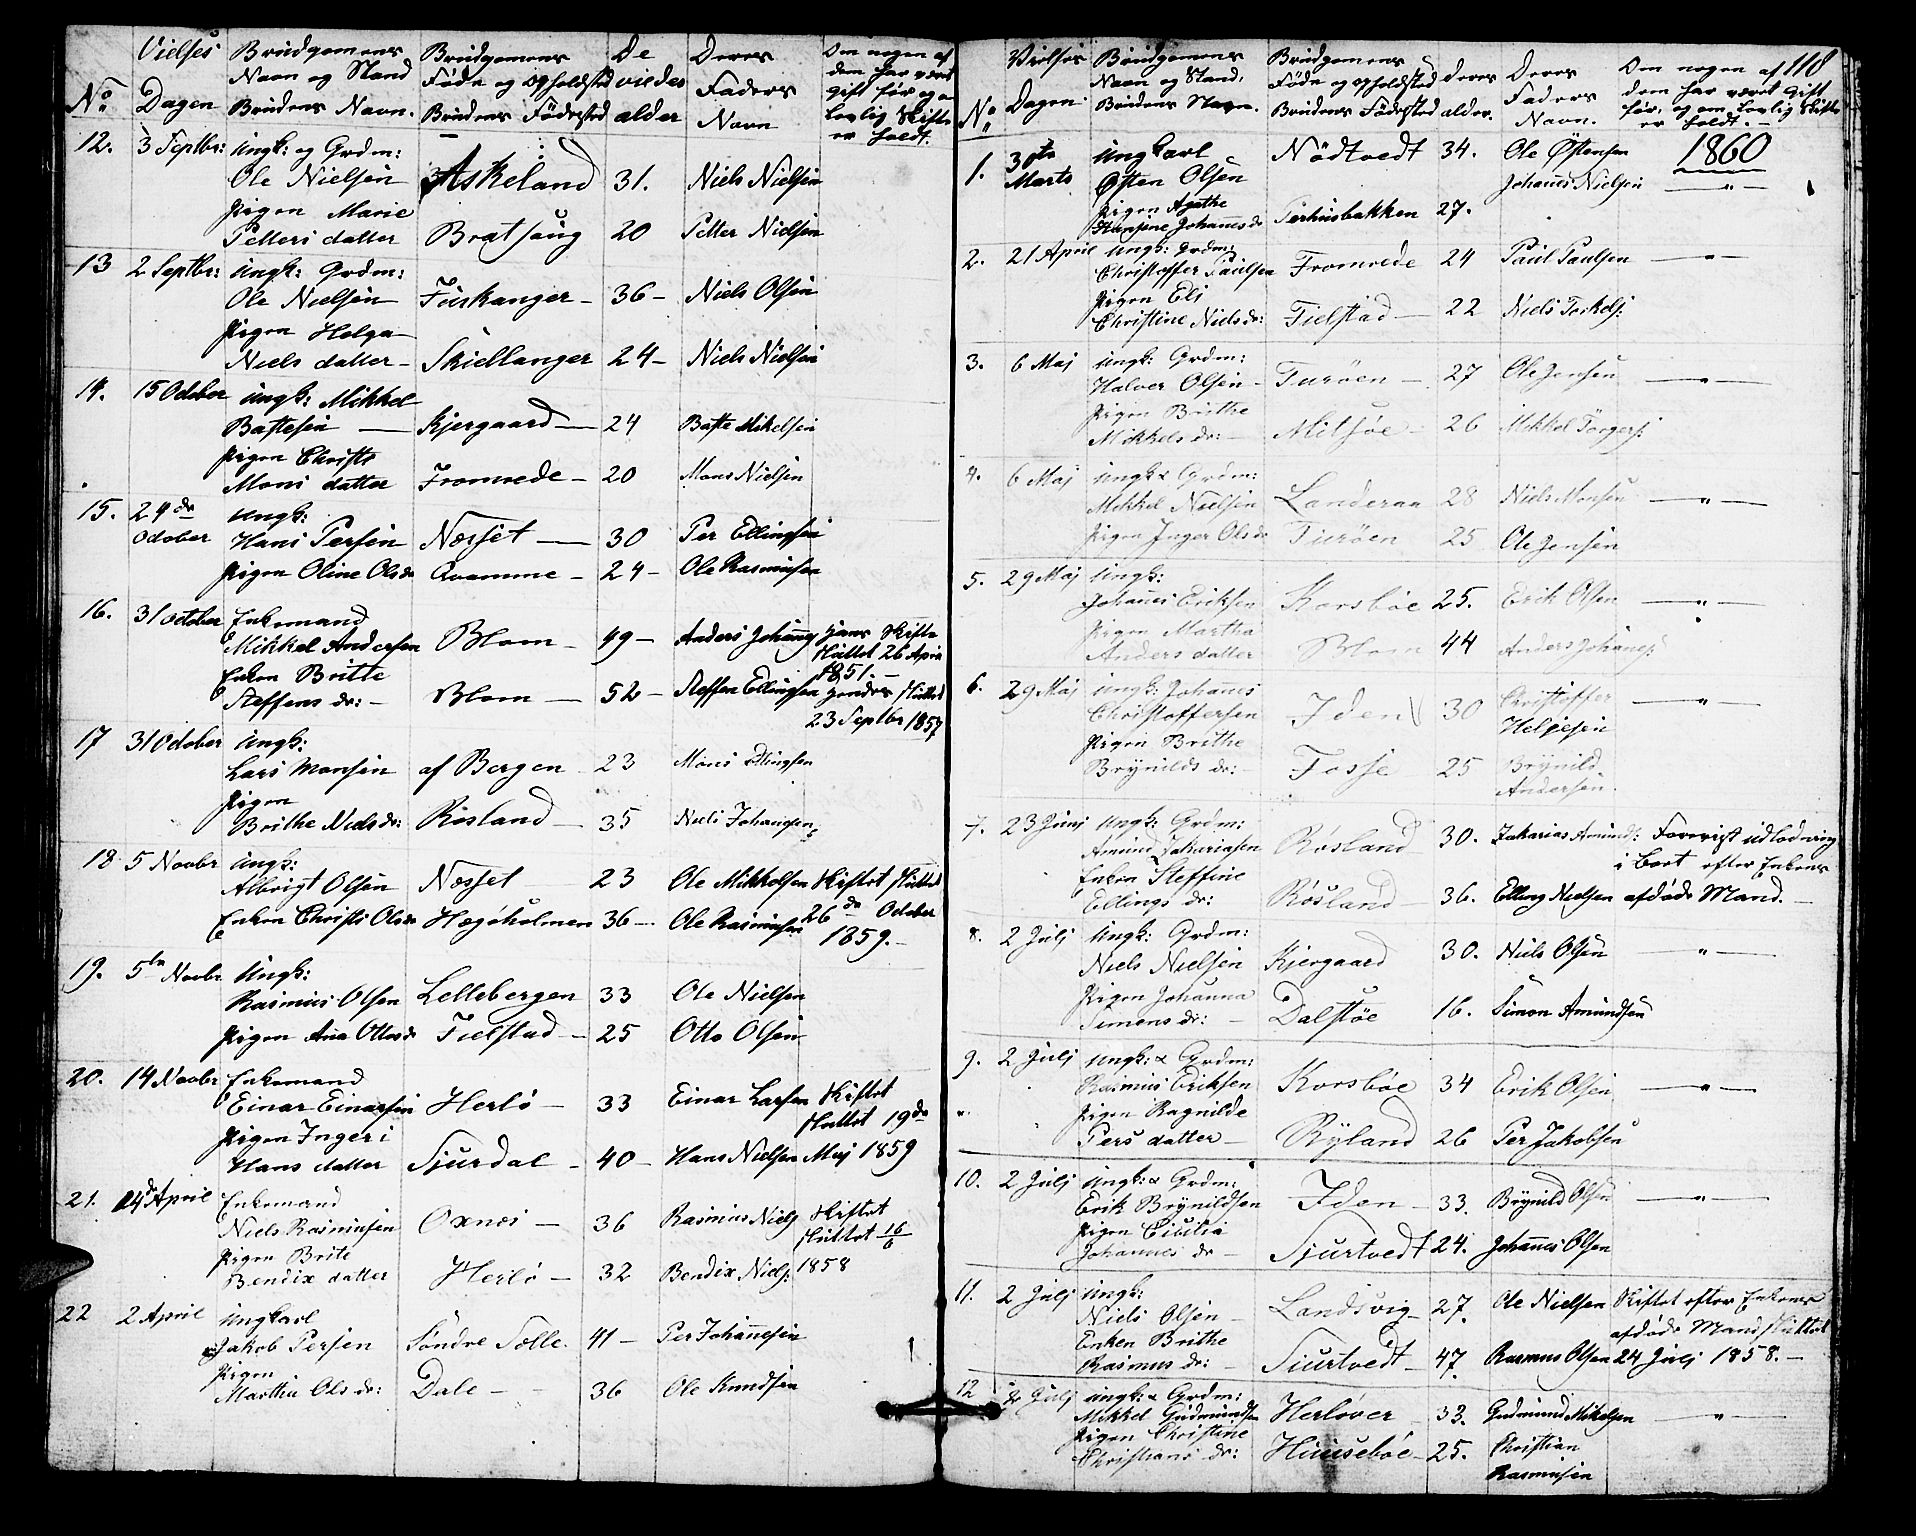 No
Vielses
Dagen
Brudgomens
Navn og Stand
Brudens Navn.
Brudgomens
Føde og opholdsted
Brudens Fødested
De
viedes
alder
Deres
Faders
Navn
Om nogen af
dem har været
gift før og om
Lovlig Skifte
er holdt.
12. 3 Septbr: Ungk: og Grdm:
Ole Nielsen Askeland 31. Niels Nielsen
Pigen Marie
Petters datter Bratsoug 20 Petter Nielsen
13 2 Septbr: Ungk: Grdm:
Ole Nielsen Fuskanger 36 – Niels Olsen
Pigen Helga
Niels datter – Skiellanger 24 – Niels Nielsen
14. 15 October Ungk: Mikkel
Bastesen – Kjergaard – 24 Baste Mikelsen
Pigen Christi
Mons datter Fromrede – 20 Mons Nielsen
15. 24de Ungk:
October Hans Persen Nesset – 30 Per Ellingsen
Pigen Oline Olsdr Qvamme – 24 – Ole Rasmussen
16. 31 October Enkemand
Mikkel Andersen Blom – 49 – Anders Johannes: hans Skifte
Sluttet 26 April
1851. –
Enken Britte
Steffens dr: – Blom – 52 – Steffen Ellingsen hendes sluttet
23 Septbr 1857
17 31 October Ungk:
Lars Monsen af Bergen 23 Mons Ellingsen
Pigen
Brithe Nielsdr: Røsland – 35 Niels Johannesen
18 5 Novbr Ungk:
Albrigt Olsen Nesset – 23 Ole Mikkelsen Skiftet sluttet
Enken Christi Olsdr Hægøholmen 36 – Ole Rasmussen 26de October
1859. –
19. 5te Novbr Ungk:
Rasmus Olsen Lellebergen 33 Ole Nielsen
Pigen Ana Ottosdr Fielstad – 25 Otto Olsen
20. 14 Novbr Enkemand
Einar Einarsen Herlø – 33 Einar Larsen Skiftet
Sluttet 19de
Pigen Ingeri
Hans datter Sjurdal – 40 – Hans Nielsen Maj 1859
21. 24de April Enkemand
Niels Rasmussen Oxnes – 36 Rasmus Niels: Skiftet
Sluttet 16/6
Pigen Brite
Bendix datter Herlø – 32 Bendix Niels: 1858
22 2 April Ungkarl
Jakob Persen Søndre Solle. 41 – Per Johannesen
Pigen
Martha Ols dr: Dale – 36 Ole Knudsen
118
No
Vielses
Dagen
Brudgomens
Navn og Stand,
Brudens Navn.
Brudgomens
Føde og opholdsted
Brudens Fødested
deres
alder.
Deres
Faders
Navn.
Om nogen af
dem har været Gift
før, og om Lovlig Skifte
er holdt. –
1860
1. 30te Ungkarl Nödtvedt 34. Ole Østensen
Marts Østen Olsen Johannes Nielsen – „ –
Pigen Agathe
Hansine Johannesdr Perhusbakken 27.
2. 21 April Ungk: Grdm:
Christoffer Paulsen Fromrede 24 Paul Paulsen – „ –
Pigen Eli
Christine Nielsdr: Fielstad – 22 Niels Torkels:
3. 6 Maj Ungk: Grdm:
Halver Olsen – Turøen – 27 Ole Jensen – „ –
Pigen Brithe
Mikkels dr: – Mitsøe – 26 Mikkel Torgers:
4. 6 Maj Ungk: & Grdm:
Mikkel Nielsen Landeraa 28 Niels Monsen – „ –
Pigen Inger Olsdr Turøen 25 Ole Jensen
5. 29 Maj Ungk:
Johannes Eriksen Korsbøe 25. Erik Olsen – „ –
Pigen Martha
Anders datter Blom 44 Anders Johannes:
6. 29 Maj Ungk: Johannes
Christoffersen Iden 30 Christoffer – „ –
Helgesen
Pigen Brithe
Brynilds dr: – Fosse 25 Brynild
Andersen.
7. 23 Junj Ungk: Grdm:
Amund Zakariasen Røsland 30. Zakarias Amunds: Forevigt udlodning
i Boet efter Enkens
Enken Steffine
Ellings dr: Røsland 36. Elling Nielsen afdøde Mand. –
8. 2 Julj Ungk: Grdm:
Niels Nielsen Kjergaard 30. Niels Olsen – „ –
Pigen Johanna
Simons dr: – Dalstøe 16. Simon Amundsen
9. 2 Julj Ungk: & Grdm:
Rasmus Eriksen Korsbøe 34 Erik Olsen – „ –
Pigen Ragnilde
Pers datter – Ryland 26 Per Jakobsen
10. 2 Julj Ungk: & Grdm:
Erik Brynildsen Iden – 33. Brynild Olsen – „ –
Pigen Cicilia
Johannes dr – Sjurtvedt 24. Johannes Olsen
11. 2 Julj Ungk:
Niels Olsen – Landsvig – 27. Ole Nielsen Skiftet efter Enkens
afdøde Mand sluttet
Enken Brithe
Rasmus dr: – Siurtvedt – 47. Rasmus Olsen 24 Julj 1858. –
12 2 Julj Ungk: & Grdm:
Mikkel Gudmundsen Herløver – 33. Gudmund Mikelsen – „ –
Pigen Christine
Christians dr: Huusebøe – 25. Christian
Rasmusen